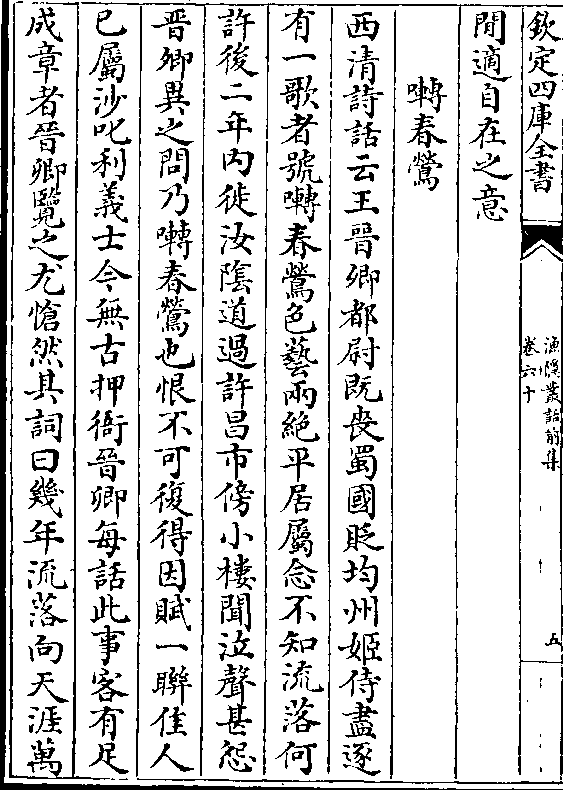 欽定四庫全書
漁隱叢話前集
卷六十
五
閒適自在之意
囀春鶯
西清詩話云王晉卿都尉既喪蜀國貶均州姬侍盡逐
有一歌者號囀春鶯色藝兩絶平居屬念不知流落何
許後二年内徙汝隂道過許昌市傍小樓聞泣聲甚怨
晉卿異之問乃囀春鶯也恨不可復得因賦一聯佳人
已屬沙吒利義士今無古押衙晉卿每話此事客有足
成章者晉卿覽之尤愴然其詞曰幾年流落向天涯萬